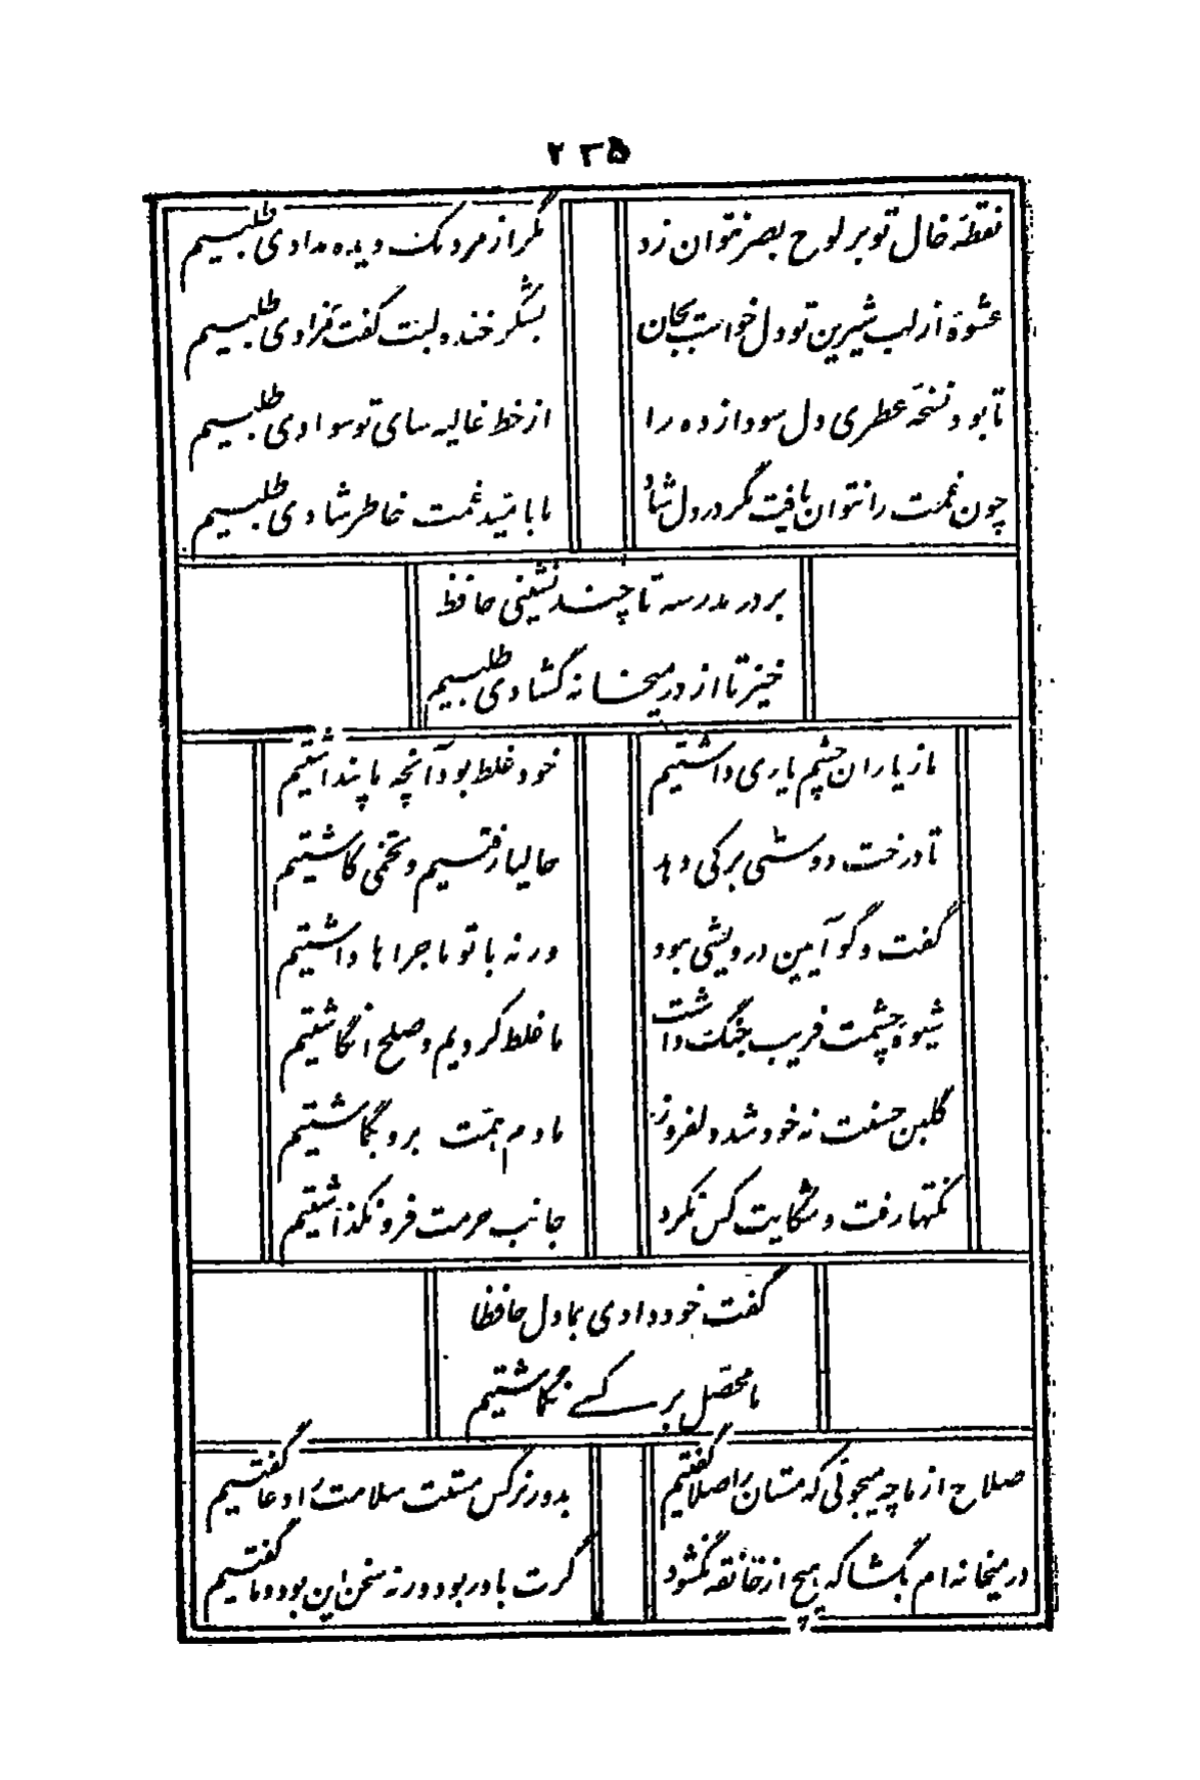 ۲۳۵
نقطهٔ خال تو بر لوح بصر نتوان زد
مگر از مردمک دیده مدادی طلبیم
عشوهٔ از لب شیرین تو دل خواست بجان
بشکر خنده لبت گفت مزادی طلبیم
تا بود نسخهٔ عطری دل سودازده را
از خط غالیه سای تو سوادی طلبیم
چون غمت را نتوان یافت مگر در دل شاد
ما بامید غمت خاطر شادی طلبیم
بر در مدرسه تا چند نشینی حافظ
خیز تا از در میخانه گشادی طلبیم
ما ز یاران چشم یاری داشتیم
خود غلط بود آنچه ما پنداشتیم
تا درخت دوستی برکی دهد
حالیا رفتیم و تخمی کاشتیم
گفت و گو آیین درویشی نبود
ورنه با تو ماجراها داشتیم
شیوهٔ چشمت فریب جنگ داشت
ما غلط کردیم و صلح انگاشتیم
گلبن حسنت نه خود شد دلفروز
ما دم همّت برو بگماشتیم
نکتها رفت و شکایت کس نکرد
جانب حرمت فرو نگذاشتیم
گفت خود دادی بما دل حافظا
ما محصّل بر کسے نگماشتیم
صلاح از ما چه میجوئی که مستان را صلا گفتیم
بدور نرکس مستت سلامت را دعا گفتیم
در میخانه ام بگشا که هیچ از خانقه نگشود
گرت باور بود ورنه سخن این بود و ما گفتیم